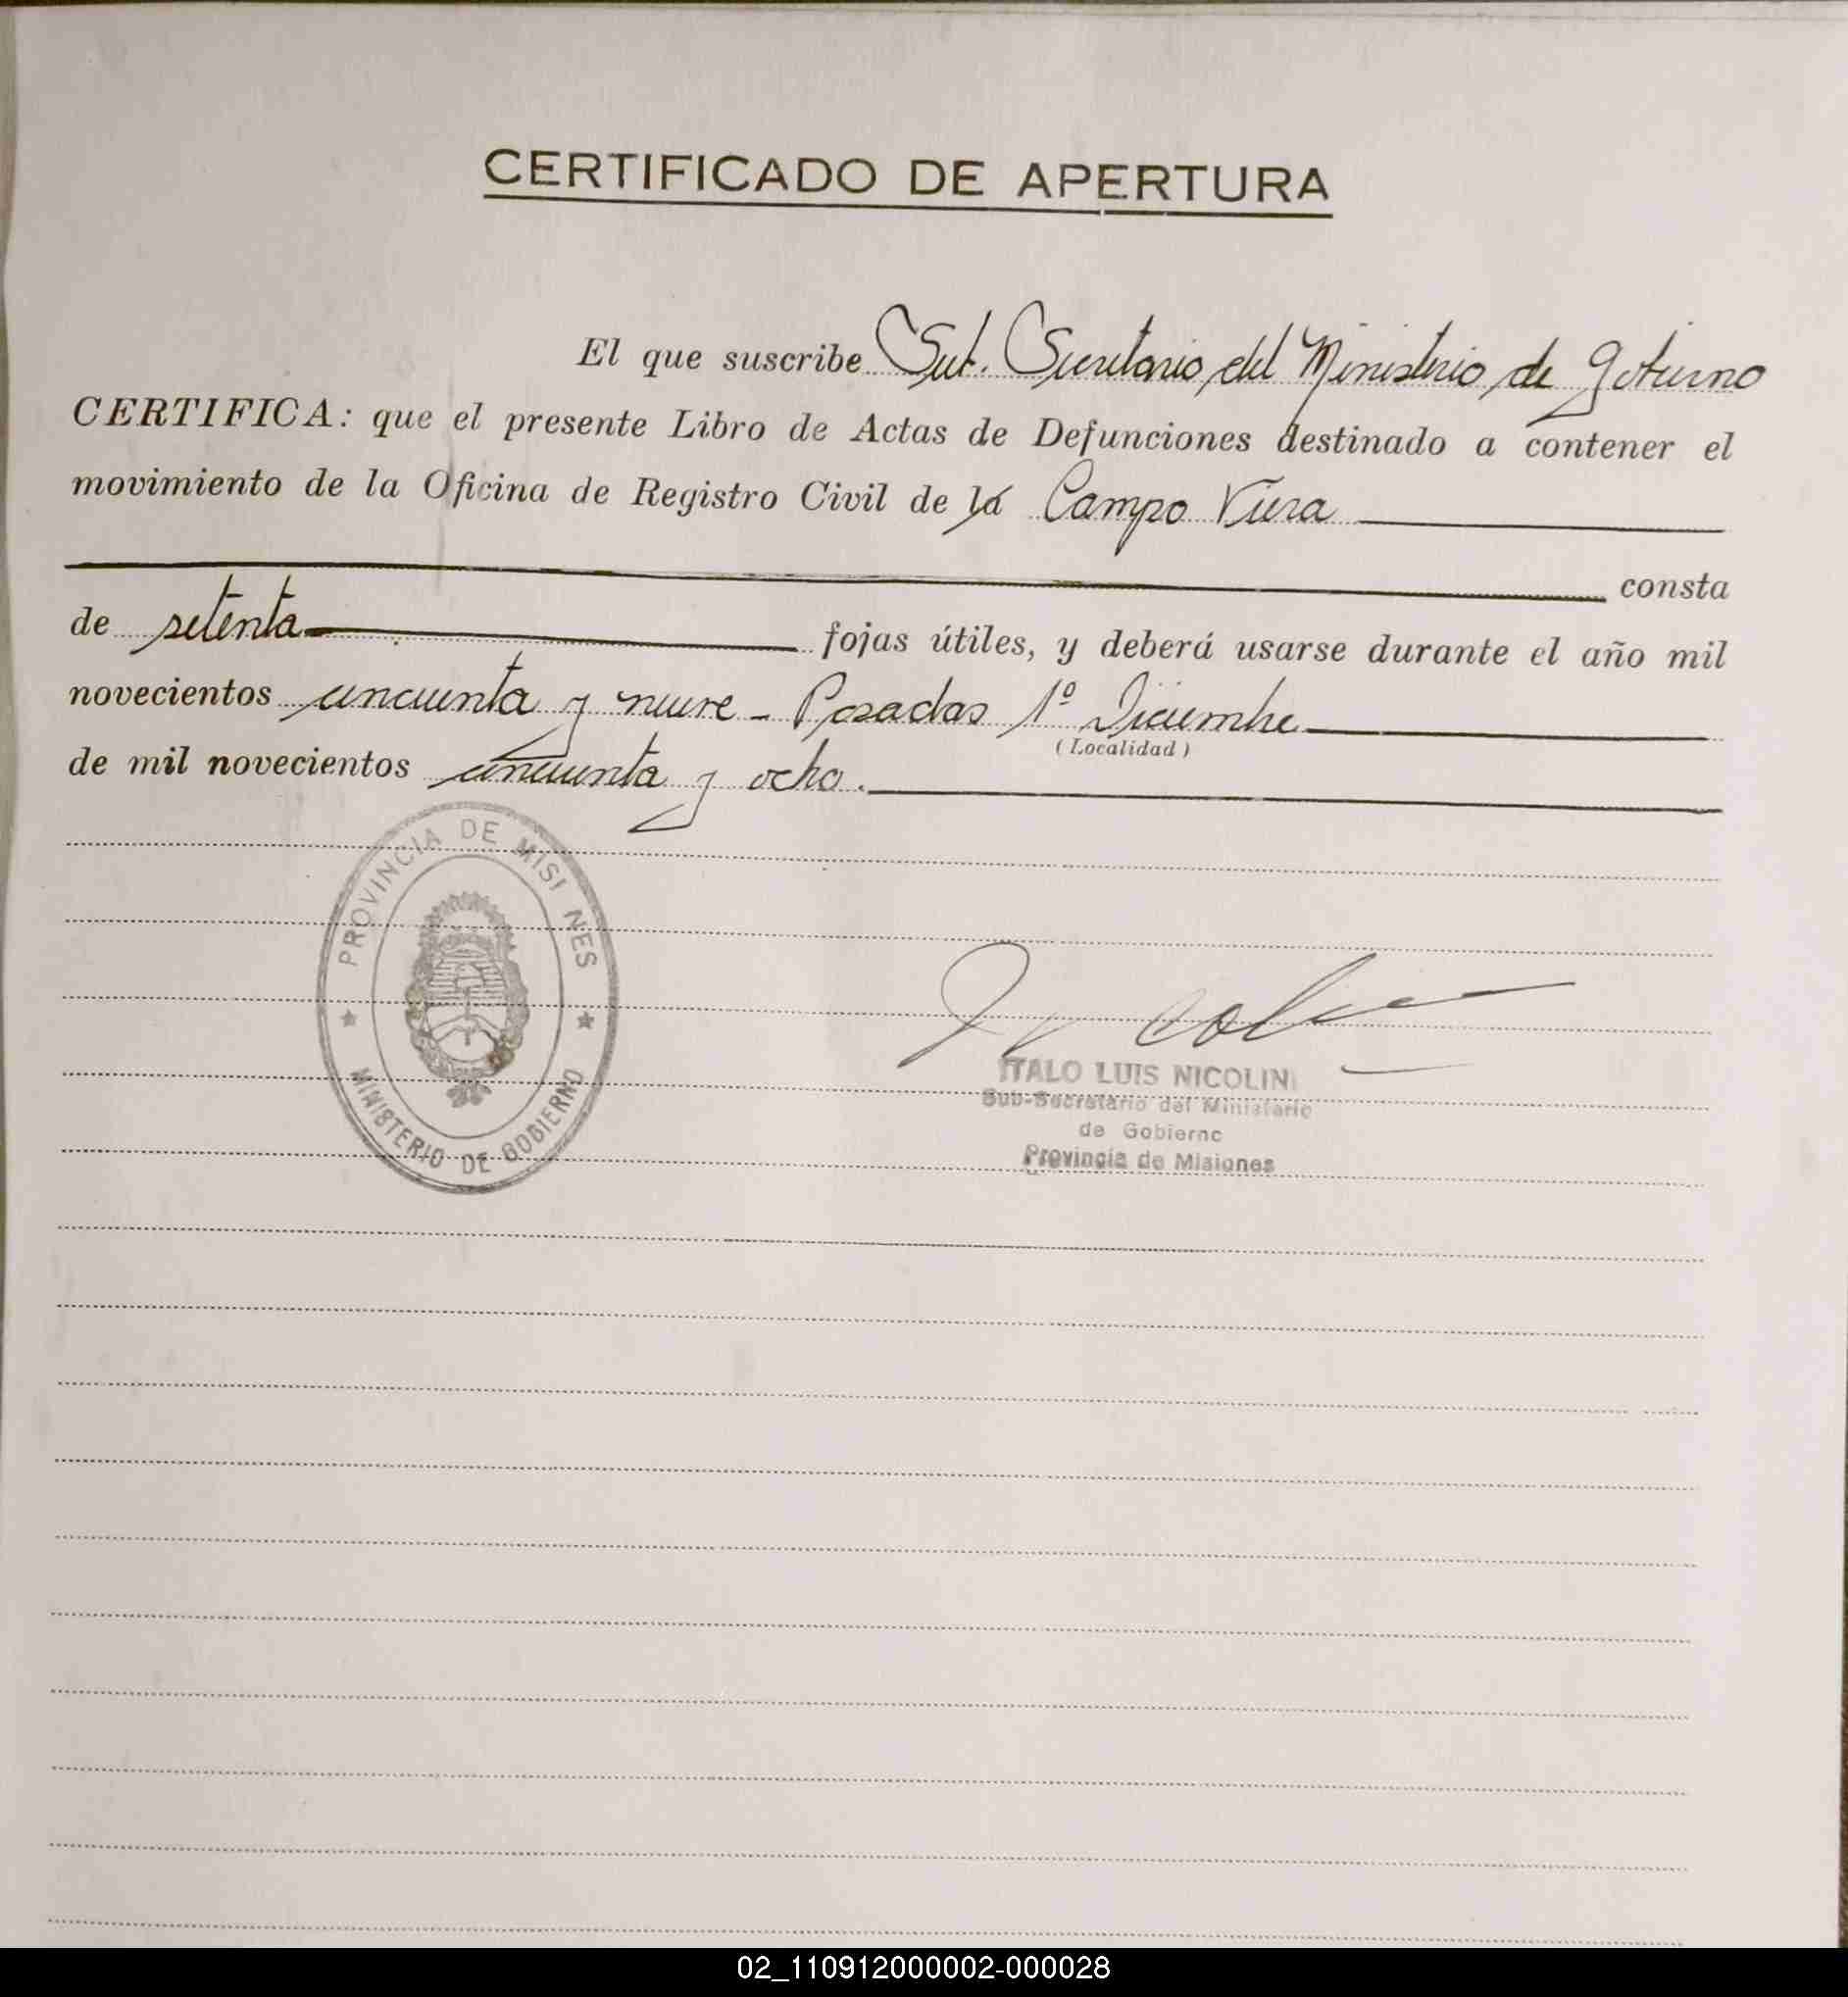 CERTIFICADO DE APERTURA
El que suscribe Sub. Secretario del Ministerio de Gobierno
CERTIFICA: que el presente Libro de Actas de Defunciones destinado a contener el
movimiento de la Oficina de Registro Civil de la Campo Viera
consta
de setenta fojas útiles, y deberá usarse durante el año mil
novecientos cincuenta y nueve - Posadas 1º Diciembre
(Localidad)
de mil novecientos cincuenta y ocho.
PROVINCIA DE MISI NES
MINISTERIO DE GOBIERNO
ITALO LUIS NICOLINI
Sub-Secretario del Ministerio
de Gobierno
Provincia de Misiones
02_110912000002-000028